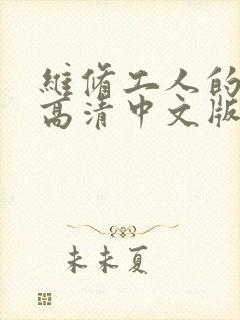 維脩工人的
高清中文版
未未夏